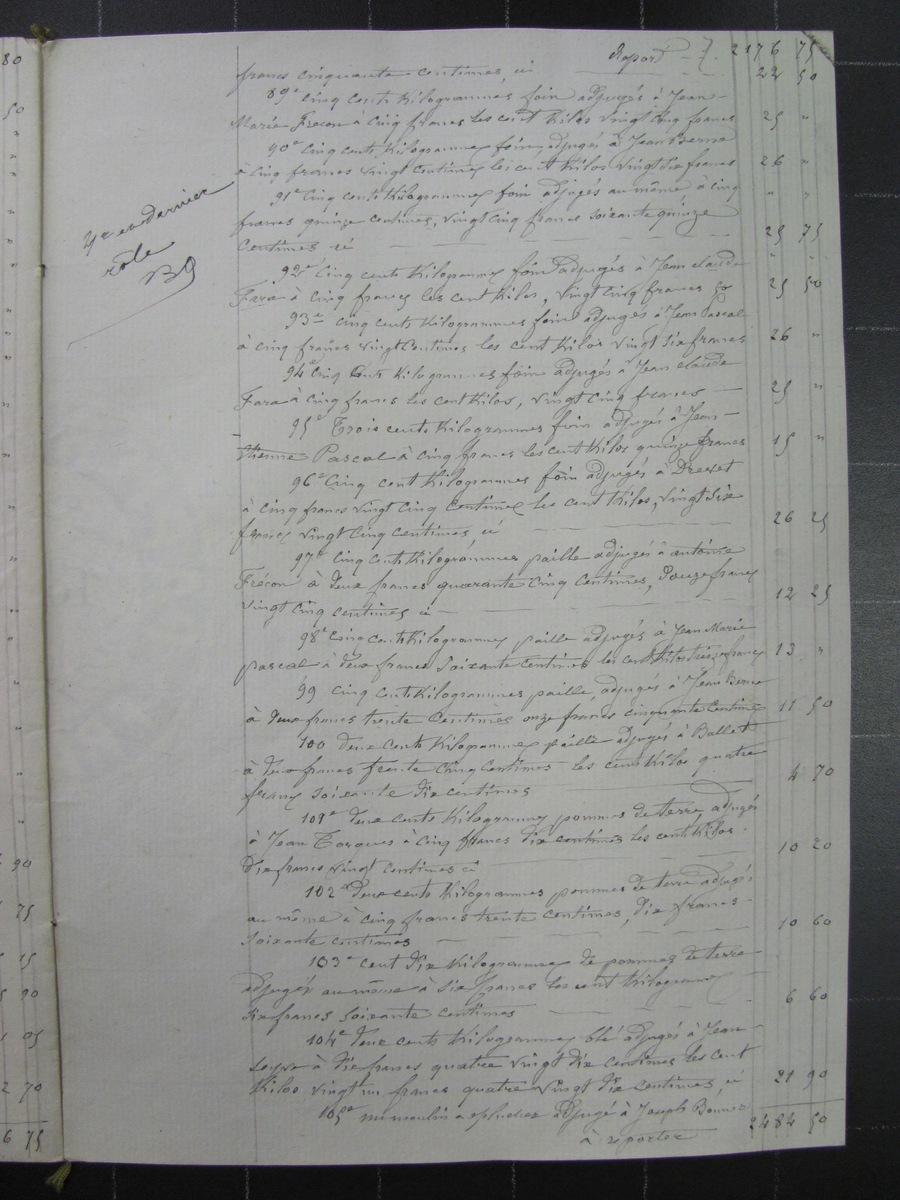 Report 2176 75
francs cinquante centimes, ci 22 50
89e Cinq cents Kilogrammes foin adjugés à Jean
Marie Frécon à Cinq francs les cent Kilos Vingt cinq francs 25 "
90e Cinq cents Kilogrammes foin adjugés à Jean Berne
à cinq francs vingt centimes les cent Kilos Vingt six francs 26 "
91e Cinq cents Kilogrammes foin adjugés au même à cinq " "
francs quinze centimes, Vingt cinq francs soixante quinze
Centimes ci 25 75
4e et dernier
rôle
92e Cinq cents Kilogrammes foin adjugés à Jean claude " "
Fara à cinq francs les cent Kilos, Vingt cinq francs 50 25 50
93e cinq cents Kilogrammes foin adjugés à Jean Pascal
à cinq francs vingt centimes les cent Kilos Vingt six francs 26 "
94e Cinq Cents Kilogrammes foin adjugés à Jean claude
Fara à cinq francs les cent Kilos, Vingt cinq francs 25 "
95e Trois cents Kilogrammes foin adjugés à Jean-
Pascal à cinq francs les cent Kilos quinze francs 15 "
96e Cinq cent Kilogrammes foin adjugés à Drevet
à cinq francs vingt cinq Centimes les cent Kilos, Vingt six
francs vingt cinq centimes, ci 26 25
97e Cinq Cents Kilogrammes paille adjugés à antoine
Frécon à deux francs quarante cinq Centimes, Douze francs
Vingt cinq centimes ci 12 25
98e Cinq cents Kilogrammes paille adjugés à Jean Marie
pascal à deux francs Soixante Centimes les cent Kilos treize francs 13 "
99 Cinq Cents Kilogrammes paille, adjugés à Jean Berne
à deux francs trente Centimes onze francs cinquante Centimes 11 50
100 Deux Cents Kilogrammes paille adjugés à Ballet
à deux francs trente cinq Centimes les cent Kilos quatre
francs Soixante dix centimes 4 70
101e deux cents Kilogrammes pommes de terre adjugés
à Jean à Cinq francs dix centimes les cent Kilos.
Dix francs vingt centimes ci 10 20
102e Deux cents Kilogrammes pommes de terre adjugés
au même à cinq francs trente centimes, Dix francs
Soixante centimes 10 60
103e cent dix Kilogrammes de pommes de terre
adjugés au même à six francs les cent Kilogrammes
Six francs soixante centimes 6 60
104e deux cents Kilogrammes blé adjugés à Jean
à dix francs quatre vingt dix centimes les cent
Kilos vingt un francs quatre vingt dix centimes, ci 21 90
105e un moulin adjugé à Joseph Bonnet 2484 50
à reporter
80
50
90
75
15
90
05
2 70
6 75